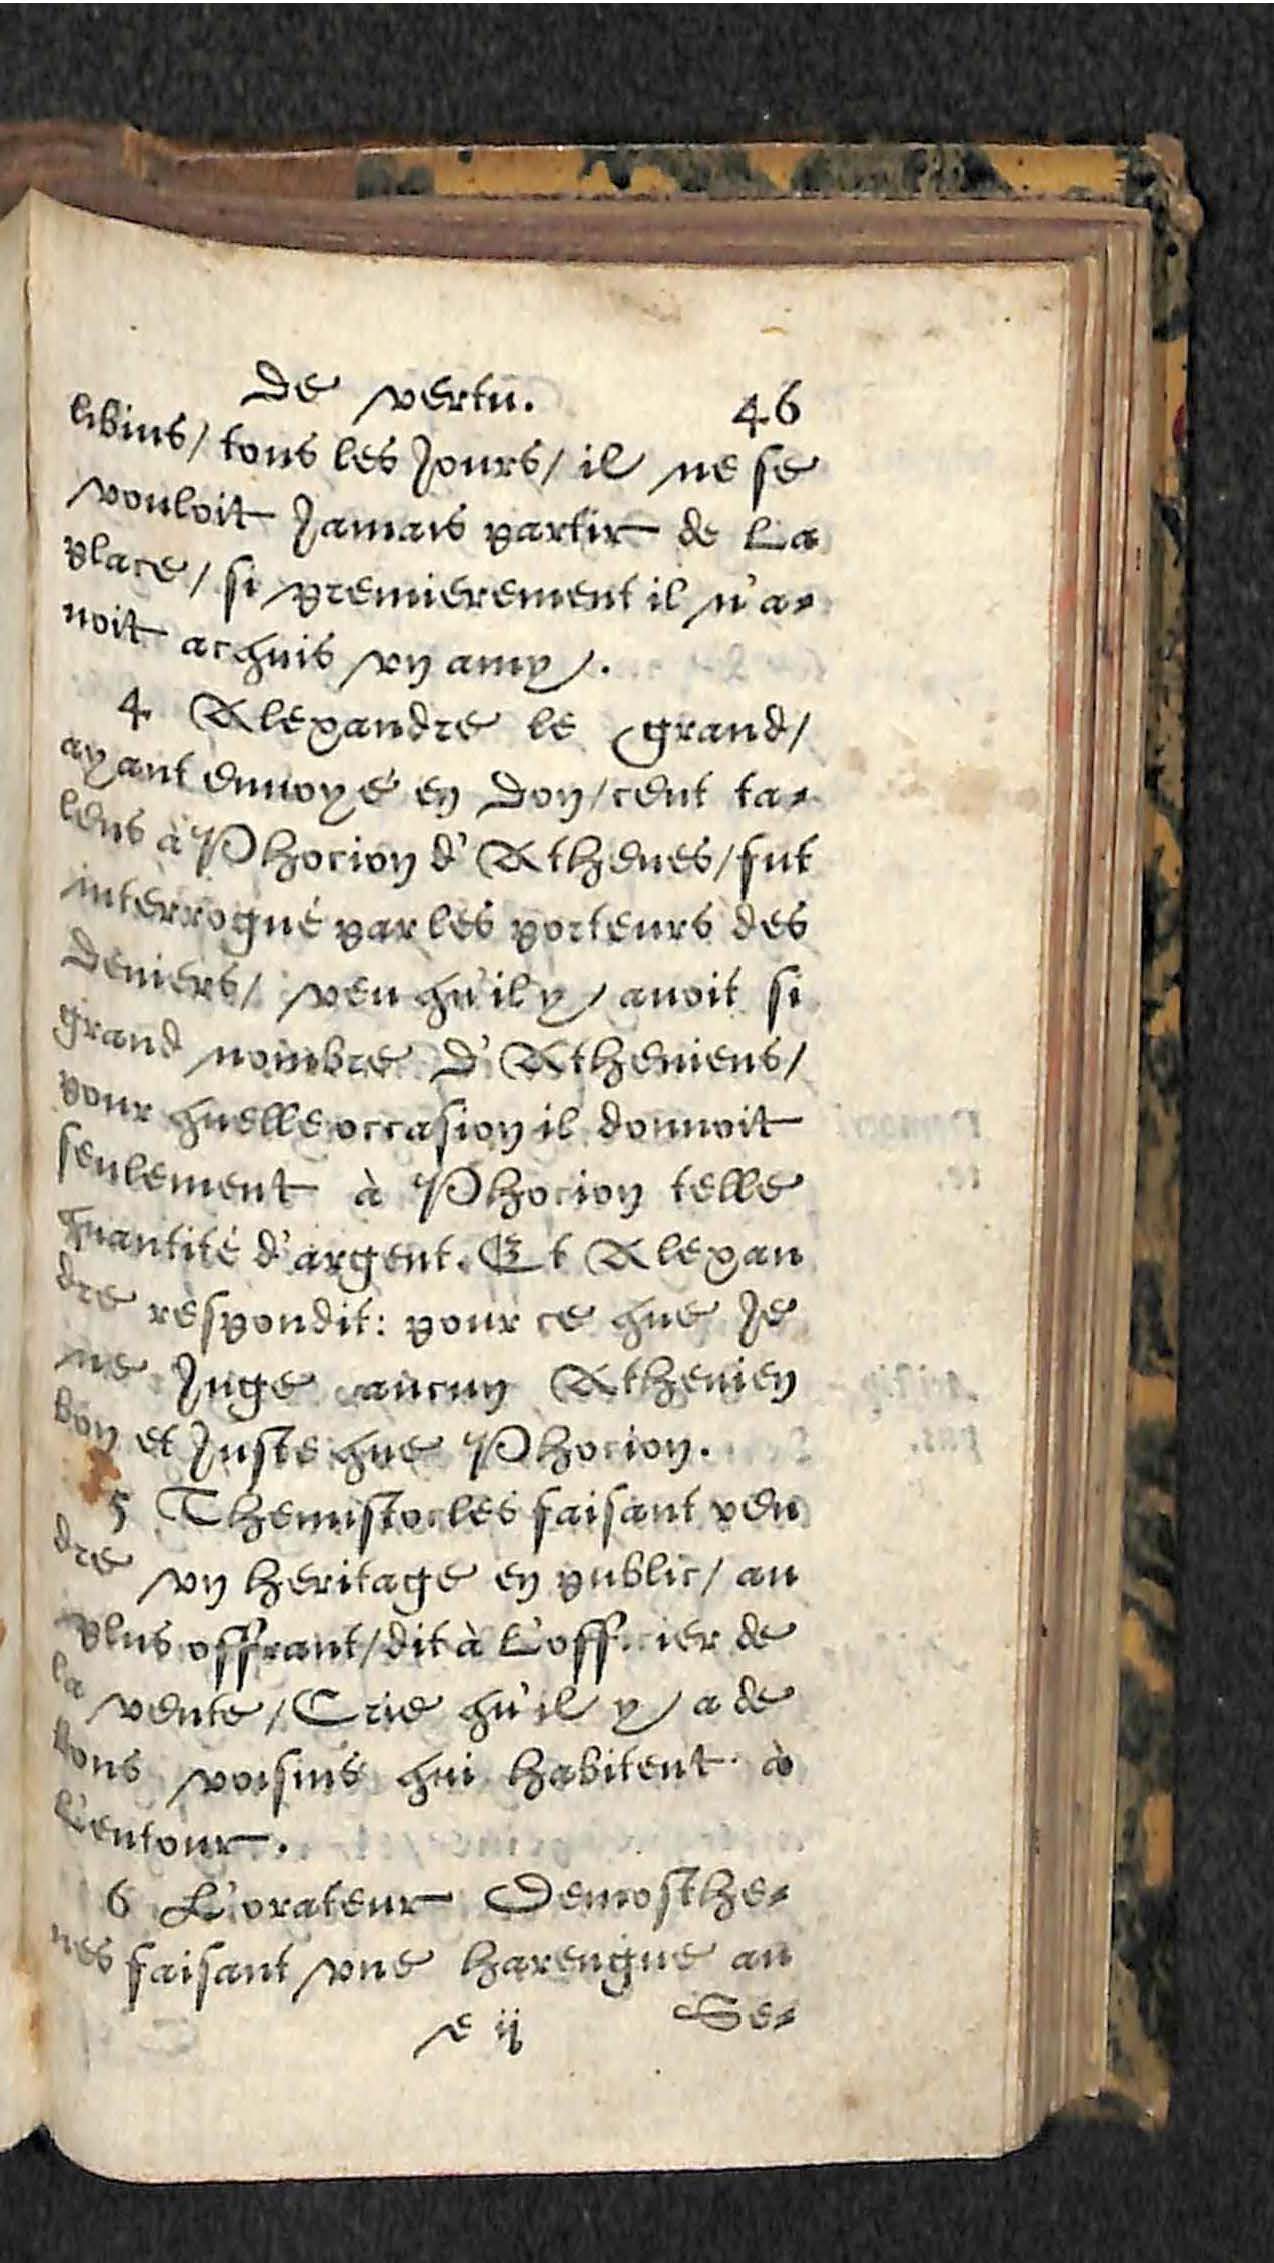 De vertu. 46
libius/ tous les Jours/ il ne se
vouloit Jamais partir de La
place/ si premierement il n'a-
uoit acquis vn amy.
4 Alexandre le grand/
ayant enuoyé en Don/ cent ta-
lens à Phocion d'Athenes/ fut
interrogué par les porteurs des
Deniers/ veu qu'il y auoit si
grand nombre D'Atheniens/
pour quelle occasion il donnoit
seulement à Phocion telle
quantité d'argent. Et Alexan
dre respondit: pour ce que Je
ne Juge aucun Athenien
bon et Juste que Phocion.
5 Themistocles faisant ven
dre vn heritage en public/ au
plus offrant/ dit à L'officier de
la vente/ Crie qu'il y a de
bons voisins qui habitent à
L'entour.
6 L'orateur Demosthe-
nes faisant vne harengue au
e ij Se-